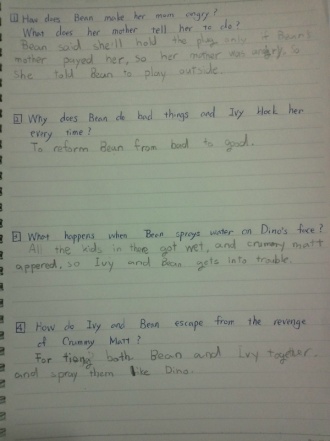 1 How does Bean make her mom angry?
What does her mother tell her to do?
Bean said she'll hold the plug only if Bean's
mother payed her, so her mother was angry, So
she told Bean to play outside.
2 Why does Bean do bad things and Ivy Hock her
every time?
To reform Bean from bad to good.
3 What happens when Bean sprays water on Dino's face?
All the kids in there got wet, and crummy matt
appered, so Ivy and Bean gets into trouble.
4 How do Ivy and Bean escape from the revenge
of Crummy Matt?
For both Bean and Ivy
and spray them like Dino.